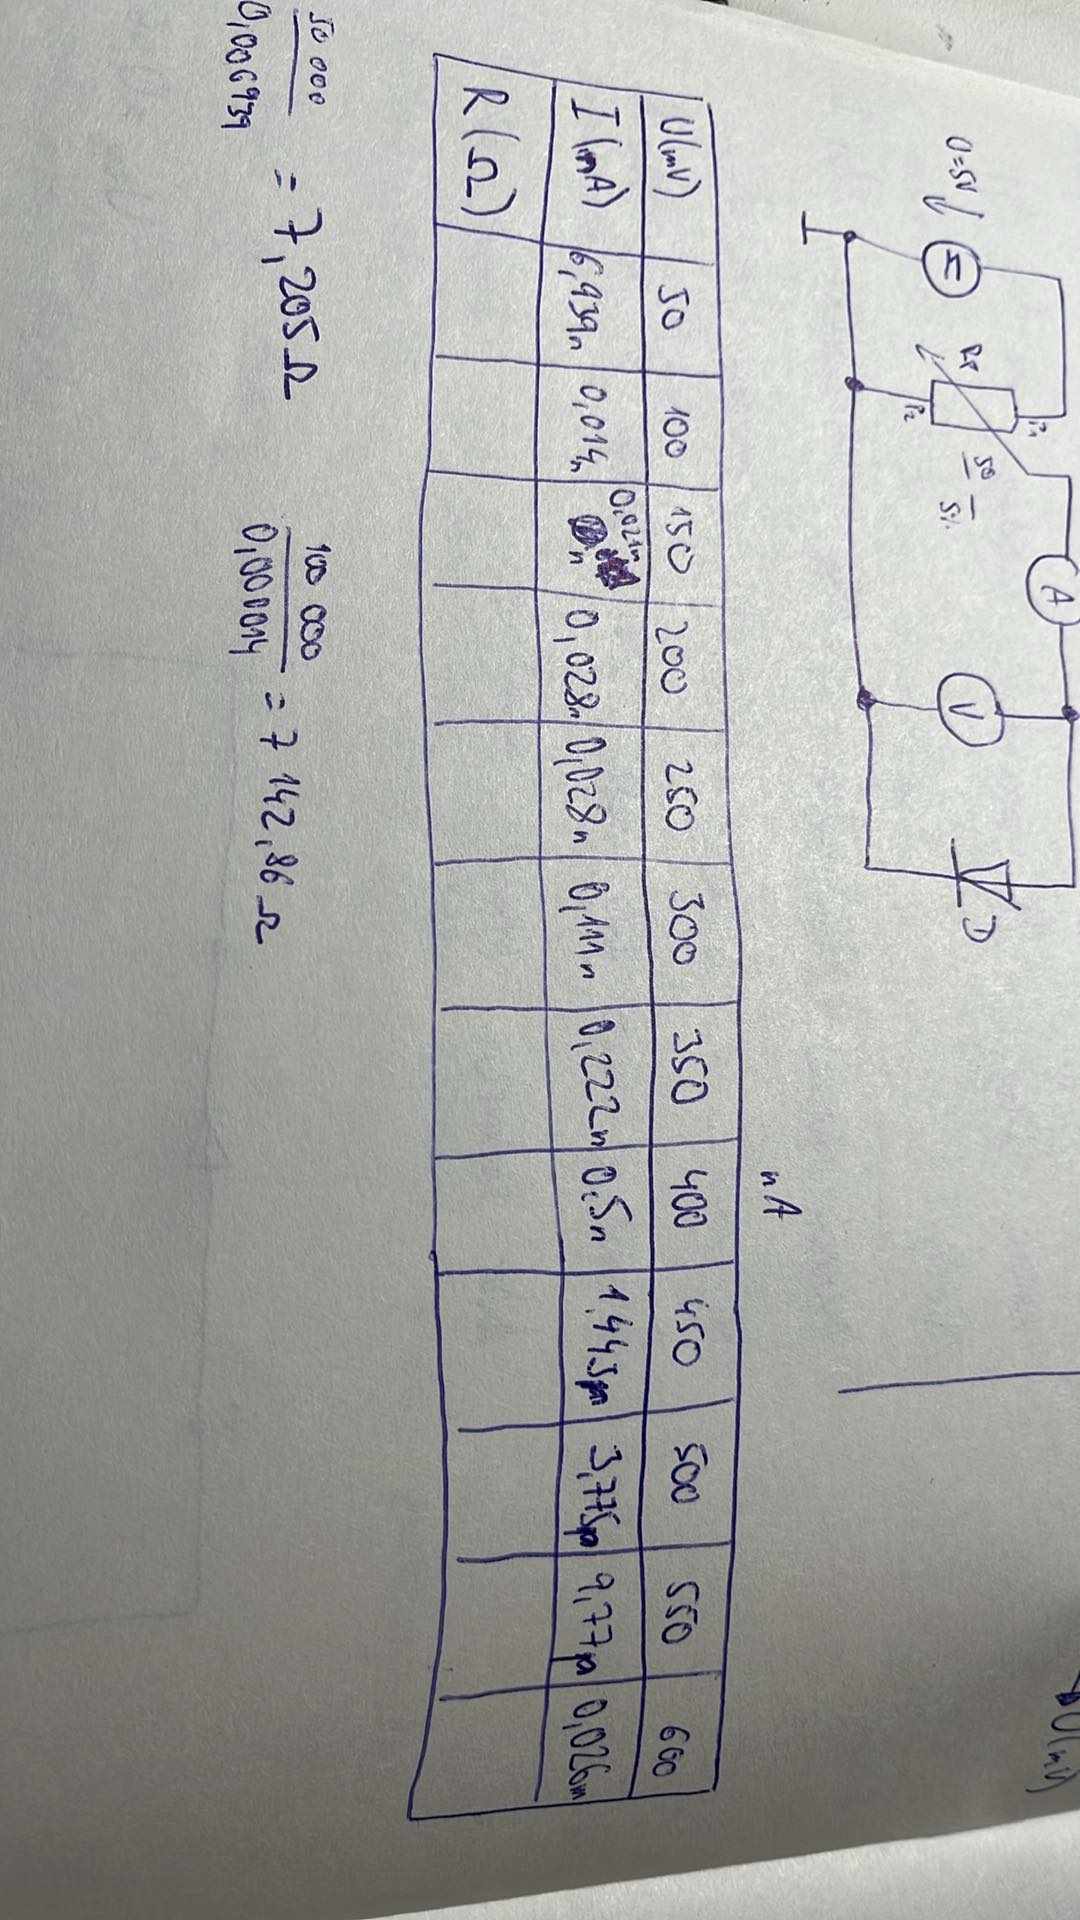 U(mV)
A
P1
U=5V
RP
50
5%
V
D
P2
nA
U(mV) 50 100 150 200 250 300 350 400 450 500 550 600
I(mA) 6,939n 0,014n 0,021n n 0,028n 0,028n 0,111n 0,222n 0,5n 1,443µ 3,775µ 9,77µ 0,026m
R(Ω)
50 000
0,006939
= 7,205Ω
100 000
0,000014
= 7 142,86 Ω